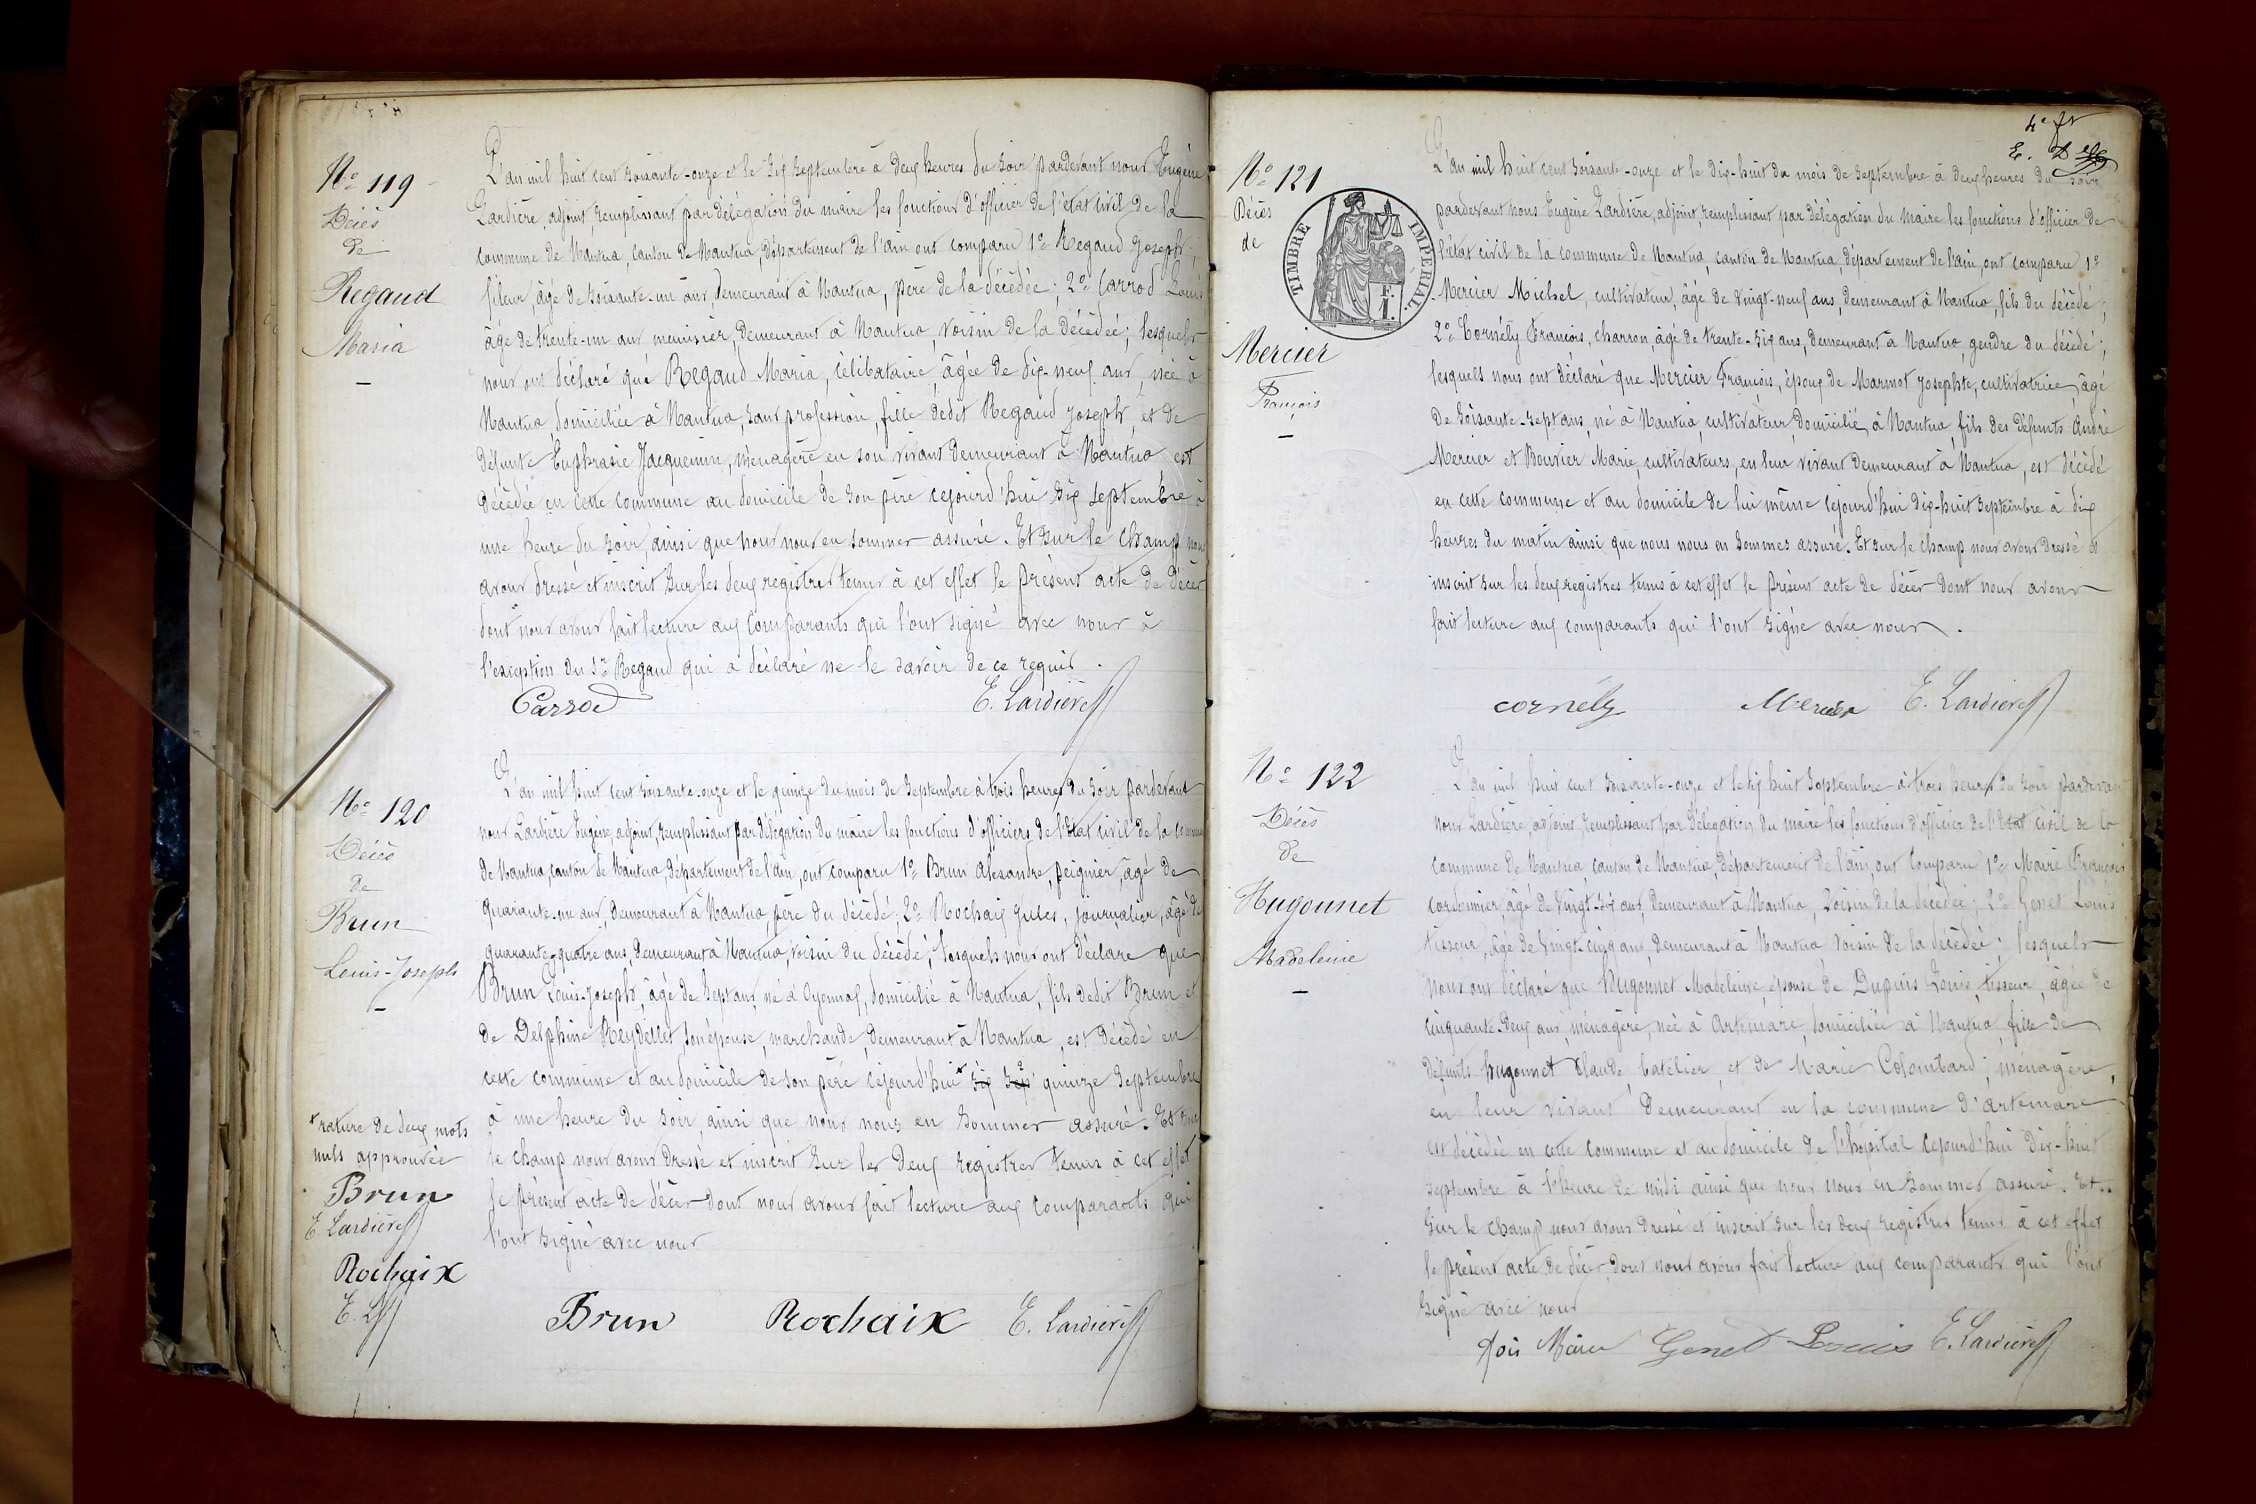 No 119
Décès
de
Regaud
Maria
L'an mil huit cent soixante-onze et le six septembre à deux heures du soir pardevant nous Eugène
Lardière, adjoint, remplissant par délégation du maire les fonctions d'officier de l'état civil de la
commune de Nantua, canton de Nantua, département de l'ain ont comparu 1o Regaud Joseph,
fileur, âgé de soixante-un ans, demeurant à Nantua, père de la décédée; 2o Carrod Louis
âgé de trente-un ans menuisier, demeurant à Nantua, voisin de la décédée; lesquels
nous ont déclaré que Regaud Maria, célibataire, âgée de dix-neuf ans, née à
Nantua domiciliée à Nantua, sans profession, fille dédit Regaud Joseph, et de
défunte Euphrasie Jacquemin, ménagère en son vivant demeurant à Nantua est
décédée en cette commune au domicile de son père cejourd'hui six septembre à
une heure du soir, ainsi que nous nous en sommes assuré. Et sur le champ nous
avons dressé et inscrit sur les deux registres tenus à cet effet le présent acte de décès
dont nous avons fait lecture aux comparants qui l'ont signé avec nous à
l'exception du Sr Regaud qui a déclaré ne le savoir de ce requis.
Carrod E. Lardière
No 120
Décès
de
Brun
Louis-Joseph
L'an mil huit cent soixante-onze et le quinze du mois de Septembre à trois heures du soir pardevant
nous Lardière Eugène, adjoint, remplissant par délégation du maire les fonctions d'officiers de l'état civil de la commune
de Nantua, canton de Nantua, département de l'ain, ont comparu 1o Brun Alexandre, peignier, âgé de
quarante-un ans, demeurant à Nantua, père du décédé; 2o Rochaix Jules, journalier, âgé de
quarante-quatre ans, demeurant à Nantua, voisin du décédé; lesquels nous ont déclaré que
Brun Louis-Joseph, âgé de sept ans, né à Oyonnax, domicilié à Nantua, fils dedit Brun et
de Delphine Reydellet, son épouse, marchande, demeurant à Nantua, est décédé en
cette commune et au domicile de son père cejourd'hui x six sep quinze Septembre
à une heure du soir, ainsi que nous nous en sommes assuré. Et sur
le champ nous avons dressé et inscrit sur les deux registres tenus à cet effet
le présent acte de décès dont nous avons fait lecture aux comparants qui
l'ont signé avec nous
x rature de deux mots
nuls approuvée
Brun
E. Lardière
Rochaix
E. L
Brun Rochaix E. Lardière
4e
E. D
No 121
Décès
de
TIMBRE IMPÉRIAL
1 F.
Mercier
François
L'an mil huit cent soixante-onze et le dix-huit du mois de septembre à deux heures du soir
pardevant nous Eugène Lardière, adjoint, remplissant par délégation du maire les fonctions d'officier de
l'état civil de la commune de Nantua, canton de Nantua, département de l'ain, ont comparu 1o
Mercier Michel, cultivateur, âgé de vingt-neuf ans, demeurant à Nantua, fils du décédé;
2o Cornély François, charron, âgé de trente-six ans, demeurant à Nantua, gendre du décédé;
lesquels nous ont déclaré que Mercier François, époux de Marmot Josephte, cultivatrice, âgé
de soixante-sept ans, né à Nantua, cultivateur, domicilié à Nantua, fils des défunts André
Mercier et Bouvier Marie, cultivateurs, en leur vivant demeurant à Nantua, est décédé
en cette commune et au domicile de lui même cejourd'hui dix-huit septembre à dix
heures du matin ainsi que nous nous en sommes assuré. Et sur le champ nous avons dressé et
inscrit sur les deux registres tenus à cet effet le présent acte de décès dont nous avons
fait lecture aux comparants qui l'ont signé avec nous.
cornély Mercier E. Lardière
No 122
Décès
de
Hugonnet
Madeleine
L'an mil huit cent soixante-onze et le dix huit Septembre à trois heures du soir pardevant
nous Lardière, adjoint, remplissant par délégation du maire les fonctions d'officier de l'état civil de la
commune de Nantua canton de Nantua, département de l'ain, ont comparu 1o Maire François
cordonnier, âgé de vingt-six ans, demeurant à Nantua, voisin de la décédée; 2o Genet Louis
tisseur, âgé de vingt-cinq ans, demeurant à Nantua, voisin de la décédée; lesquels
nous ont déclaré que Hugonnet Madeleine, épouse de Dupuis Louis, tisseur, âgée de
cinquante-deux ans, ménagère, née à Artemare, domiciliée à Nantua, fille de
défunts hugonnet Claude, batelier et de Marie Colombard, ménagère,
en leur vivant demeurant en la commune d'artemare
est décédée en cette commune et au domicile de l'hôpital cejourd'hui dix-huit
septembre à l'heure de midi ainsi que nous nous en sommes assuré. Et
sur le champ nous avons dressé et inscrit sur les deux registres tenus à cet effet
le présent acte de décès, dont nous avons fait lecture aux comparants qui l'ont
signé avec nous
fois Maire Genet Louis E. Lardière